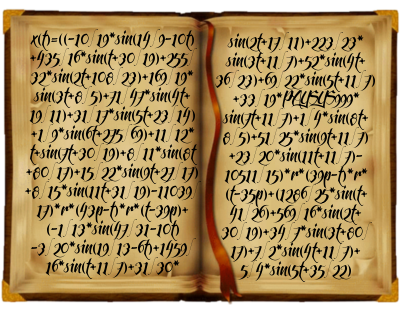 x(t)=((-10/19*sin(14/9-10t)
+435/16*sin(t+30/19)+255/
32*sin(2t+108/23)+169/19*
sin(3t+8/5)+71/47*sin(4t+
19/11)+31/17*sin(5t+23/14)
+1/9*sin(6t+275/69)+11/12*
t+sin(7t+30/19)+8/11*sin(8t
+80/17)+15/22*sin(9t+27/17)
+8/15*sin(11t+31/19)-11039/
17)*r*(43p-t)*r*(t-39p)+
(-1/13*sin(47/31-10t)
-3/20*sin(19/13-6t)+1459/
16*sin(t+11/7)+31/30*
sin(2t+17/11)+223/23*
sin(3t+11/7)+52*sin(4t+
36/23)+69/22*sin(5t+11/7)
+33/19*
sin(7t+11/7)+1/4*sin(8t+
8/5)+51/25*sin(9t+11/7)
+23/20*sin(11t+11/7)-
10511/15)*r*(39p-t)*r*
(t-35p)+(1286/25*sin(t+
41/26)+569/16*sin(2t+
30/19)+34/7*sin(3t+80/
17)+7/2*sin(4t+11/7)+
5/4*sin(5t+35/22)